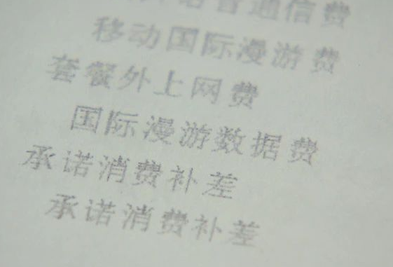 普通信费
移动国际漫游费
套餐外上网费
国际漫游数据费
承诺消费补差
承诺消费补差